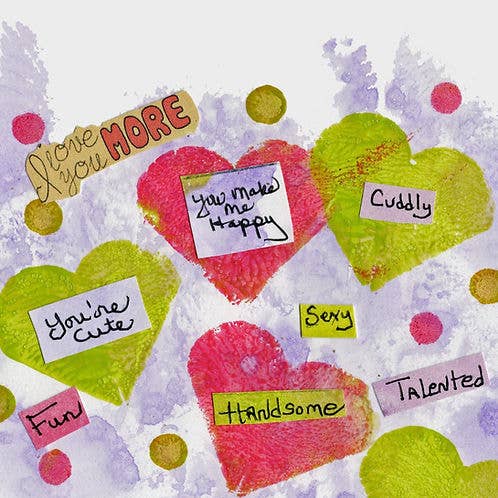 I love
you MORE
You Make
Me
Happy
Cuddly
You're
Cute
Sexy
Fun
Handsome
Talented